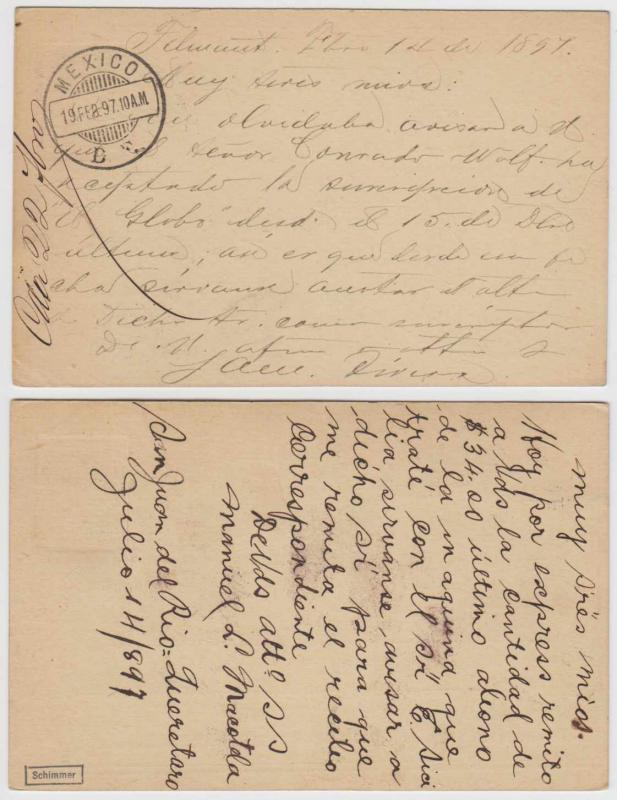 Febro 14 de 1897.
Muy Sres mios:
MEXICO
19.FEB.97.10A.M.
olvidaba avisar a U
que el Señor Conrado Wolf ha
aceptado la suscripcion de
"El Globo" desde el 15. de Dbre
último, asi es que desde esa fe
cha sirvanse anotar el alta
Dicho Sr. como suscriptor
De U. afmo y atto S
muy Srés mios.
Hoy por express remito
a Uds la cantidad de
$34.00 último abono
de la maquina que
traté con el sr
sirvanse, avisar a
dicho sr para que
me remita el recibo
Correspondiente
De Uds attº SS
Manuel L. Macotela
San Juan del Rio = Queretaro
Julio 14/897
Schimmer